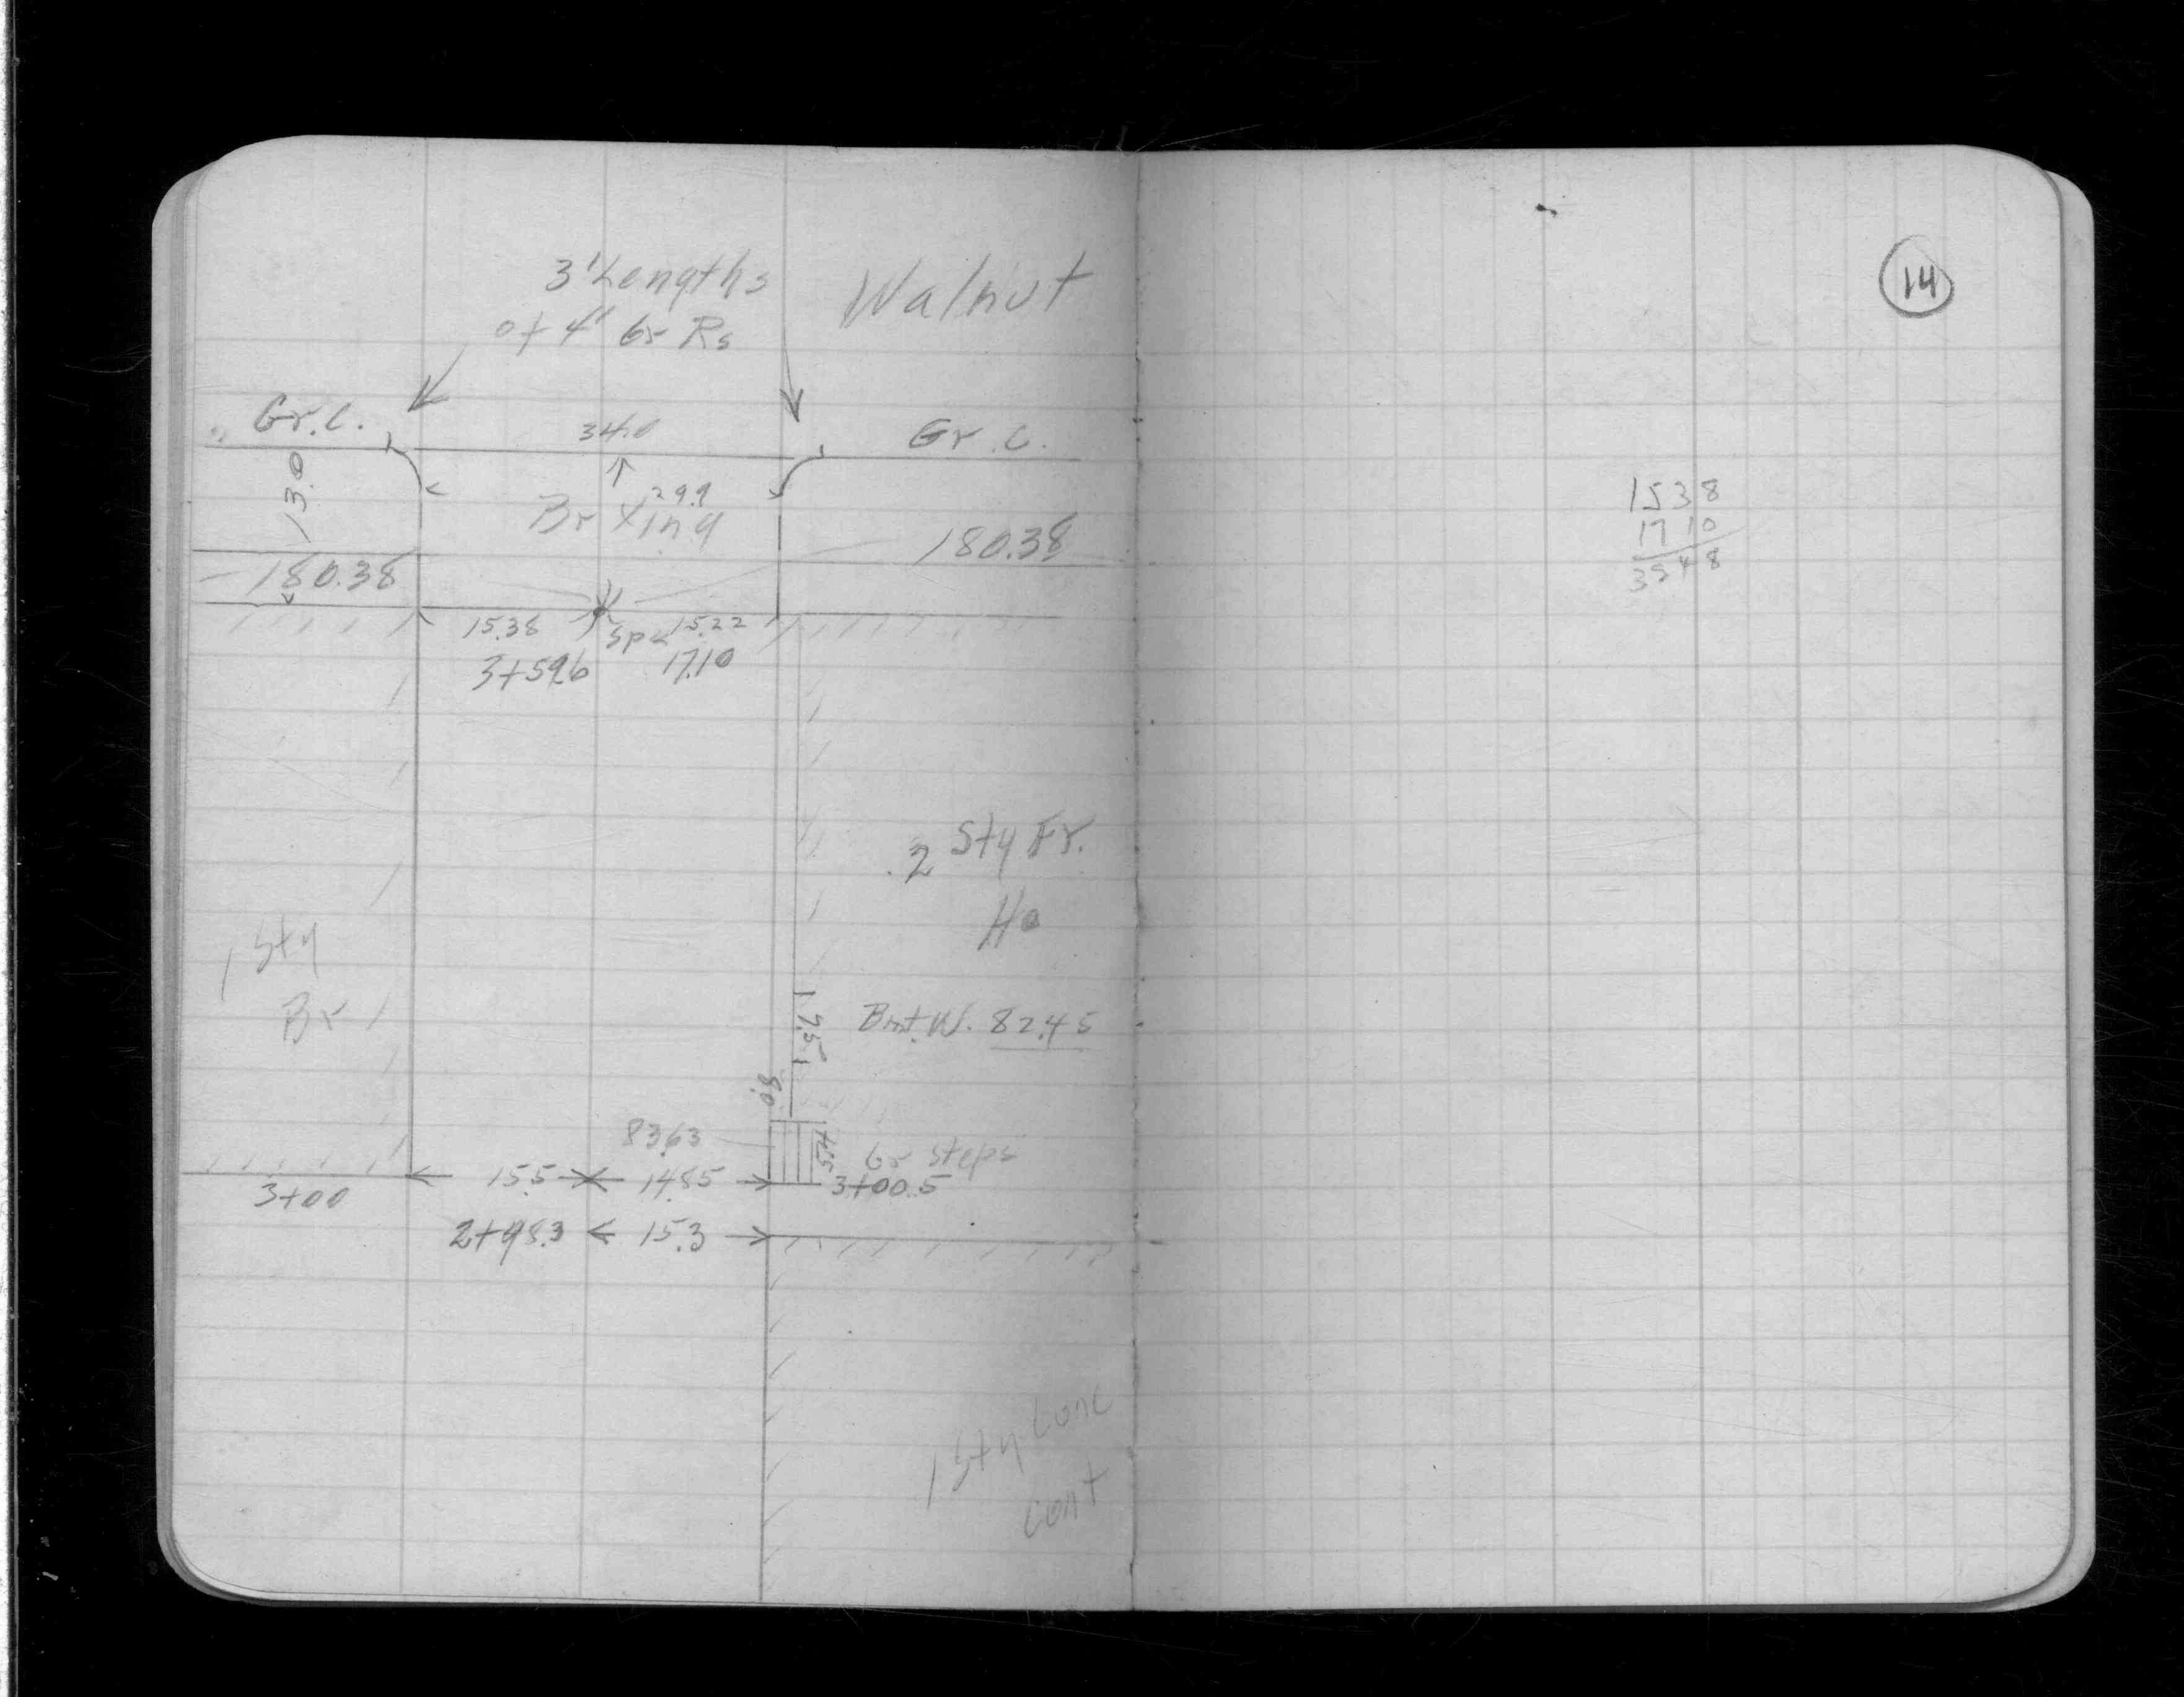 3' Lengths
of 4' Gr Rs
Walnut
Gr. C.
34.0
Gr. C.
13.0
29.9
Br Xing
180.38
180.38
15.38
Spk
15.22
3+59.6
17.10
2 Sty Fr.
Ho
1 Sty
Br
7.5
Bmt. W. 82.45
0.8
83.63
4.5
Gr steps
15.5
14.85
3+00.5
3+00
2+98.3
15.3
1 Sty Conc
cont
14
1538
1710
3248